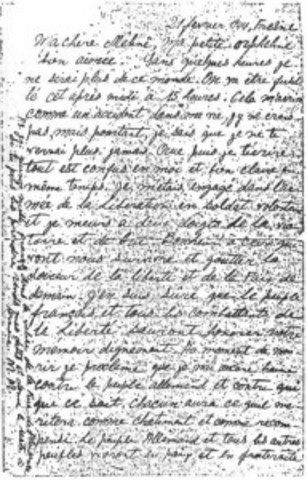 21 février 44, Fresnes
Ma chère Mélinée, ma petite orpheline
bien aimée. Dans quelques heures je
ne serai plus de ce monde. On va être fusil
lé cet après midi à 15 heures. Cela m'arrive
comme un accident dans ma vie, j'y ne crois
pas, mais pourtant, je sais que je ne te
verrai plus jamais. Que puis-je t'écrire,
tout est confus en moi et bien claire en
même temps. Je m'étais engagé dans l'ar
mée de la libération en soldat volontaire
et je meurs à deux doigts de la vic
toire et de but. Bonheur à ceux qui
vont nous survivre et goutter la
douceur de la liberté et de la Paix de
demain. J'en suis sûre que le peuple
français et tous les combattants de
la Liberté sauront honorer notre
memoir dignement. Au moment de mou
rir je proclame que je n'ai aucune haine
contre le peuple allemand et contre qui
que ce soit. Chacun aura ce qu'il me
ritera comme chatiment et comme recom
pense. Le peuple Allemand et tous les autres
peuples vivront en paix et en fraternité